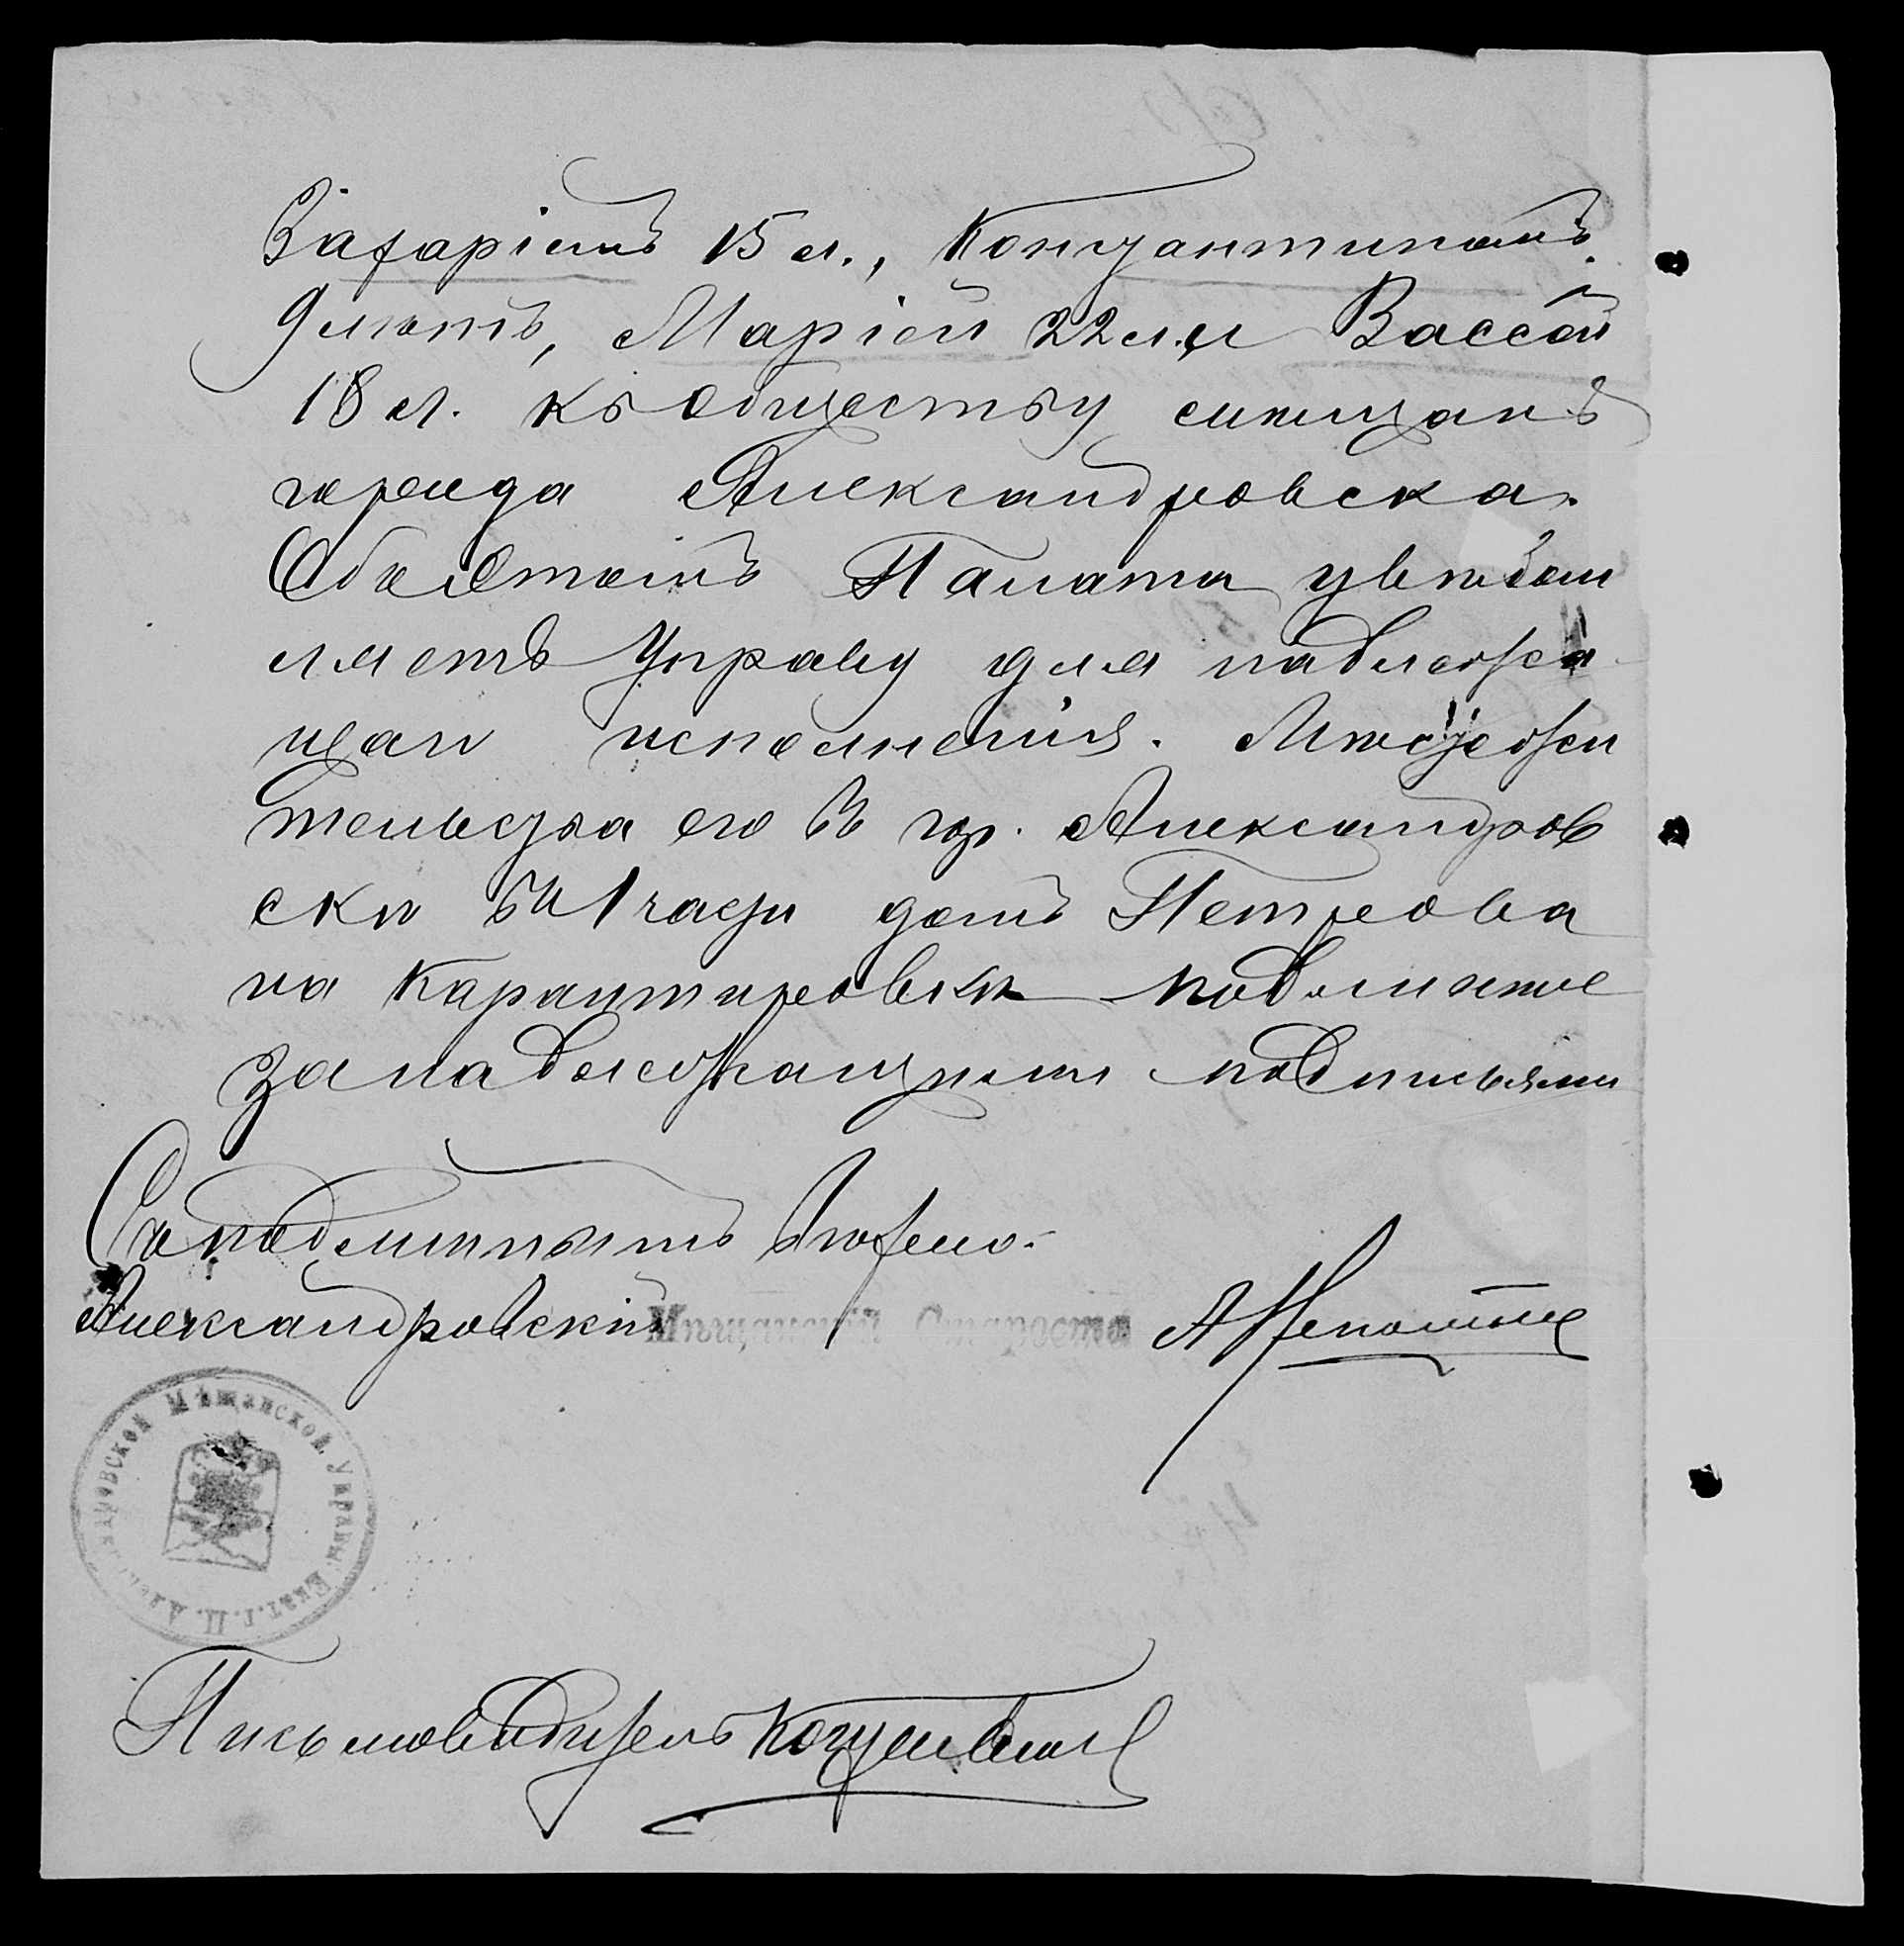 Захаріемъ 15 л., Константиномъ
9 лѣтъ, Маріей 22 л. и Вассой
18 л. къ обществу мѣщанъ
города Александровска.
Объ этомъ Палата увѣдом
ляетъ Управу для надлежа
щаго исполненія. Мѣстожи
тельства его въ гор. Александров
скѣ въ 1 части домъ Петрова
на Карантировкѣ подлинное
за надлежащими подписями
Съ подлиннымъ вѣрно:
Александровскій Мѣщанскій Староста
Александровской Мѣщанской Управы Екат. г.
Письмоводитель